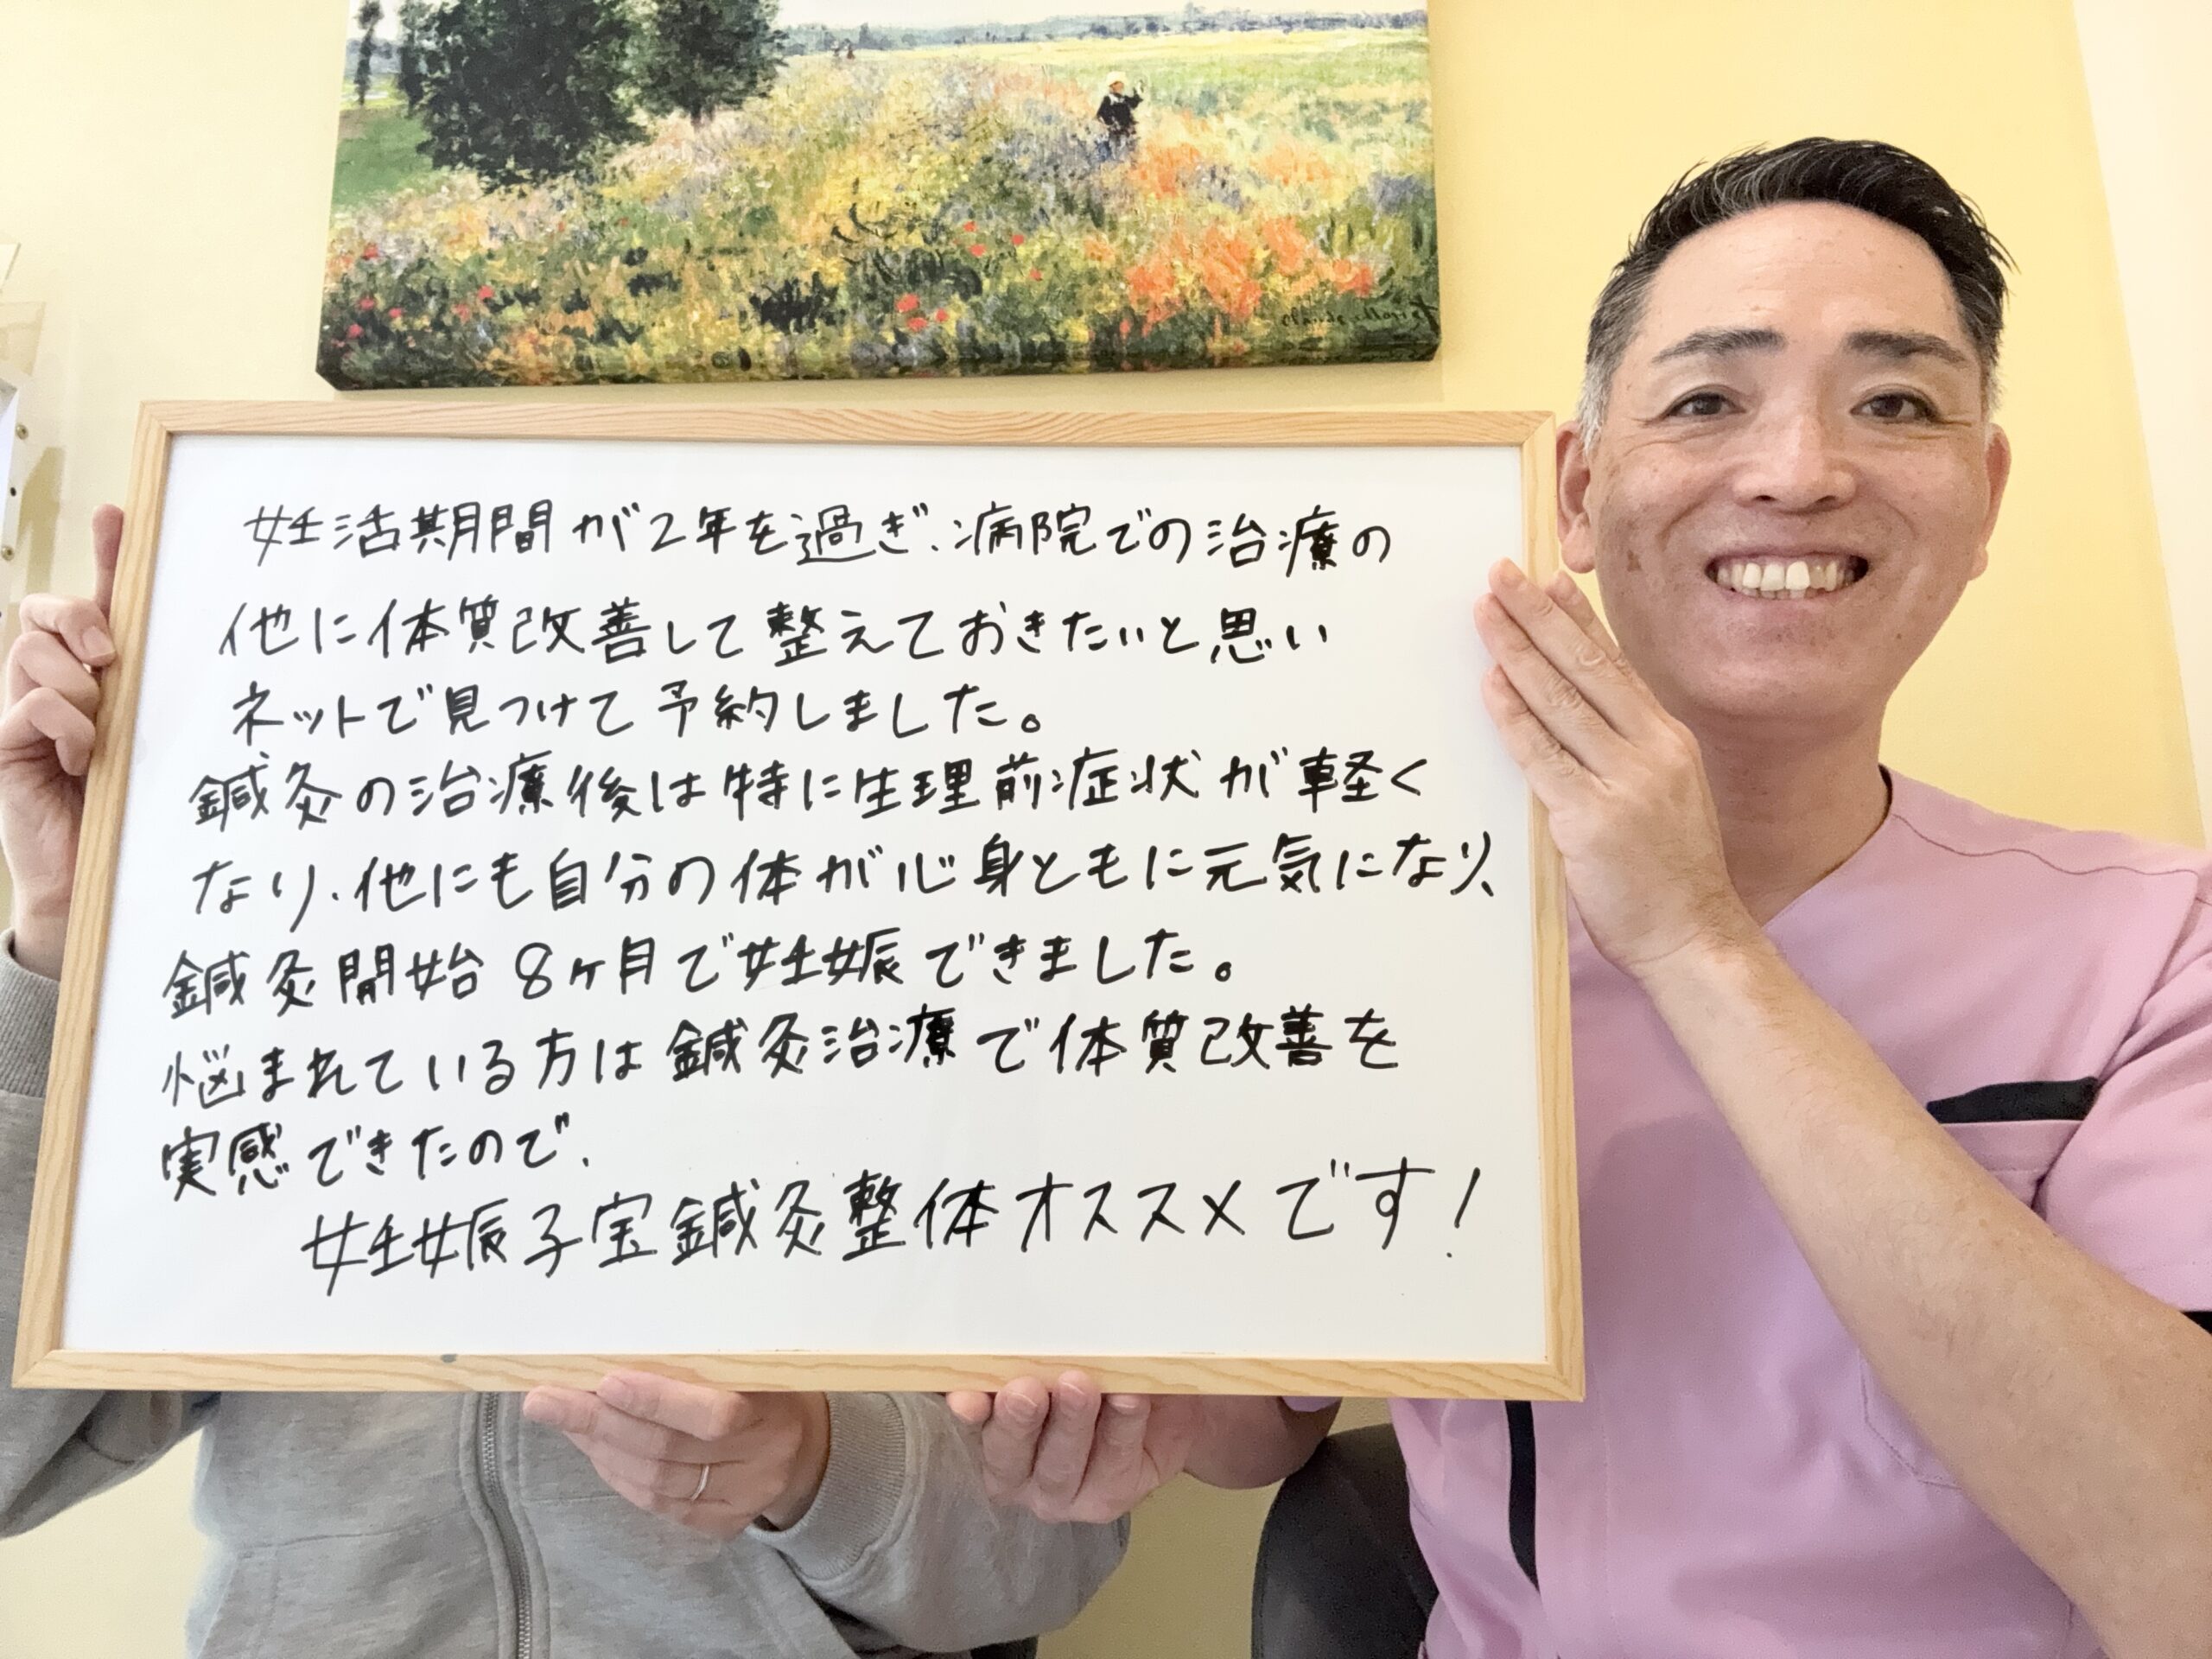 Claude Monet
妊活期間が2年を過ぎ、病院での治療の
他に体質改善して整えておきたいと思い
ネットで見つけて予約しました。
鍼灸の治療後は特に生理前症状が軽く
なり、他にも自分の体が心身ともに元気になり、
鍼灸開始8ヶ月で妊娠できました。
悩まれている方は鍼灸治療で体質改善を
実感できたので、
妊娠子宝鍼灸整体オススメです!